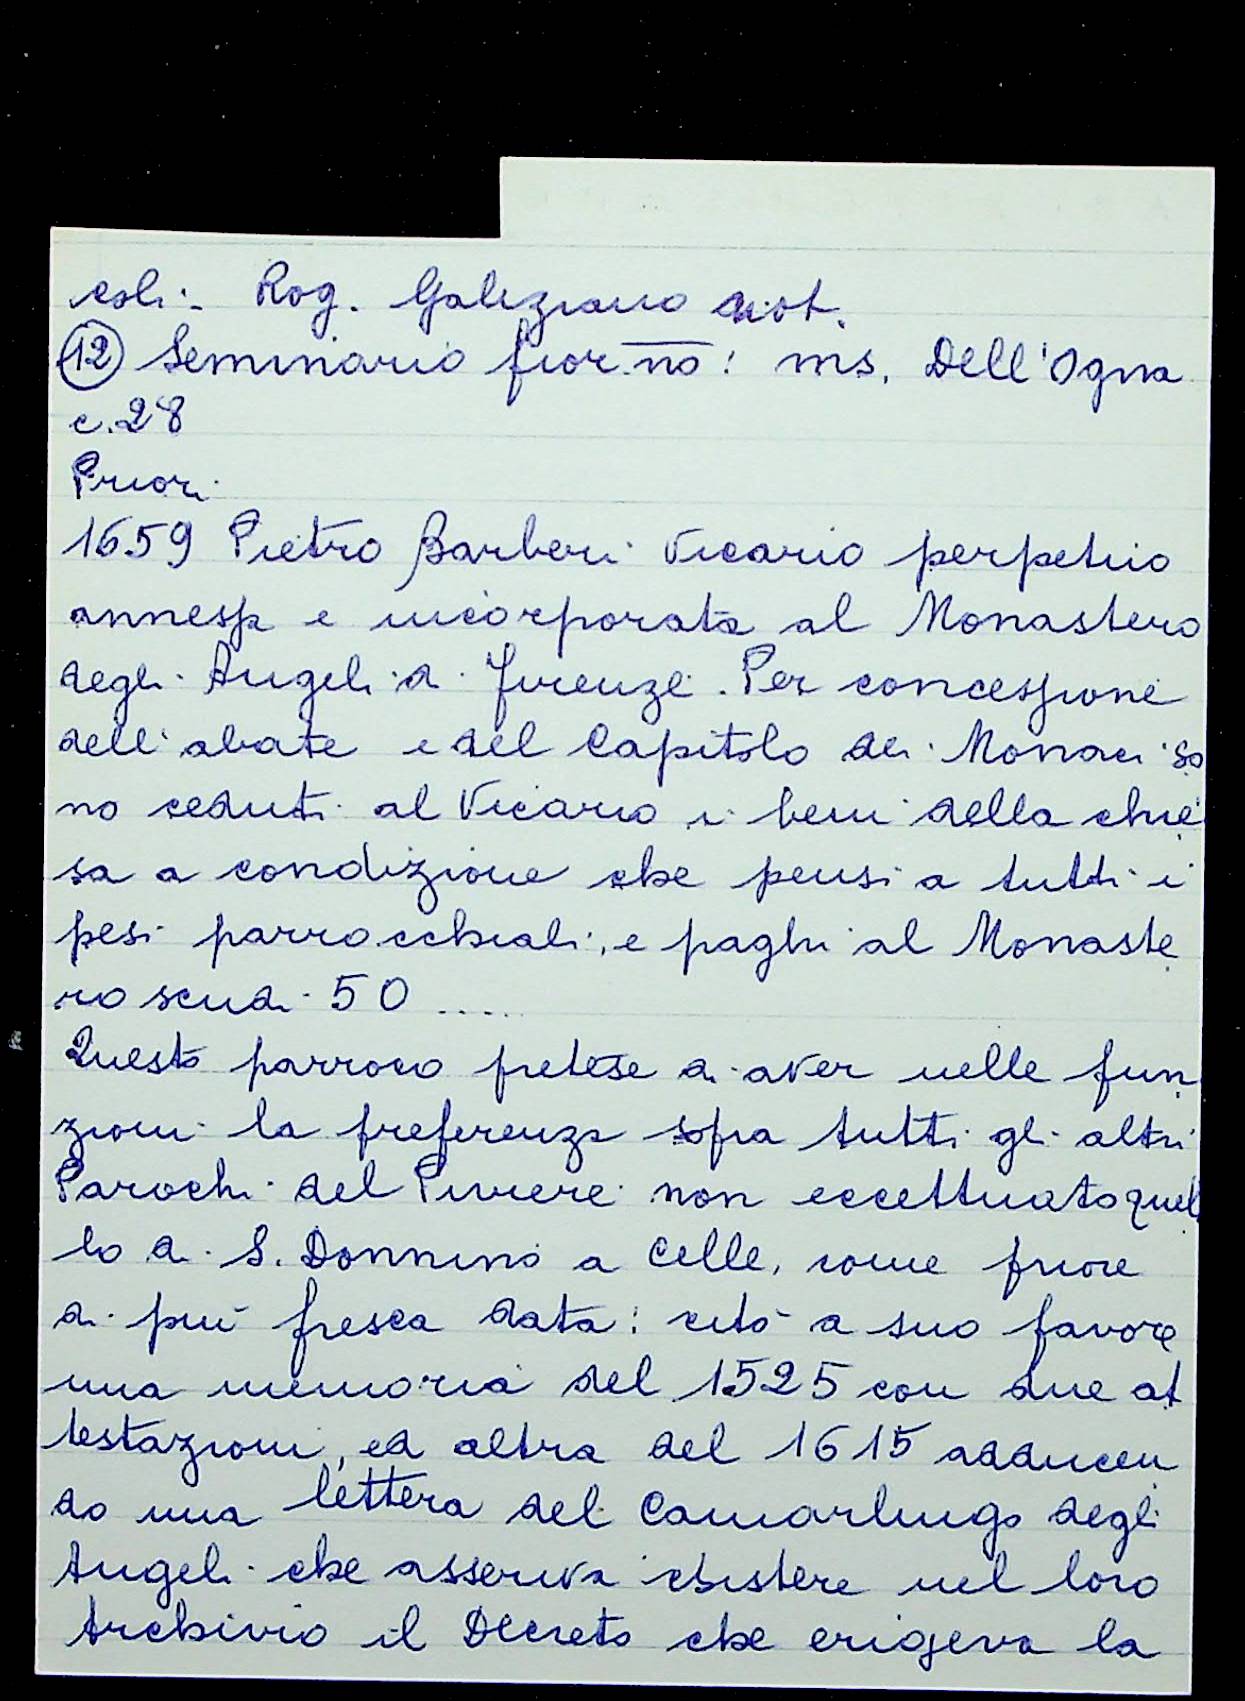 coli:- Rog. Galiziano not.
12 Seminario fior.no: ms. Dell'Ogna
c.28
Priori
1659 Pietro Barberi Vicario perpetuo
annessa e incorporata al Monastero
degli Angeli di Firenze. Per concessione
dell'abate e del Capitolo dei Monaci so
no ceduti al Vicario i beni della chie
sa a condizione che pensi a tutti i
pesi parrocchiali, e paghi al Monaste
ro scudi 50 .....
Questo parroco pretese di aver nelle fun
zioni la preferenza sopra tutti gli altri
Parochi del Piviere non eccettuato quel
lo di S. Donnino a Celle, come priore
di più fresca data: citò a suo favore
una memoria del 1525 con due at
testazioni, ed altra del 1615 adducen
do una lettera del Camarlingo degli
Angeli che asseriva esistere nel loro
Archivio il Decreto che erigeva la